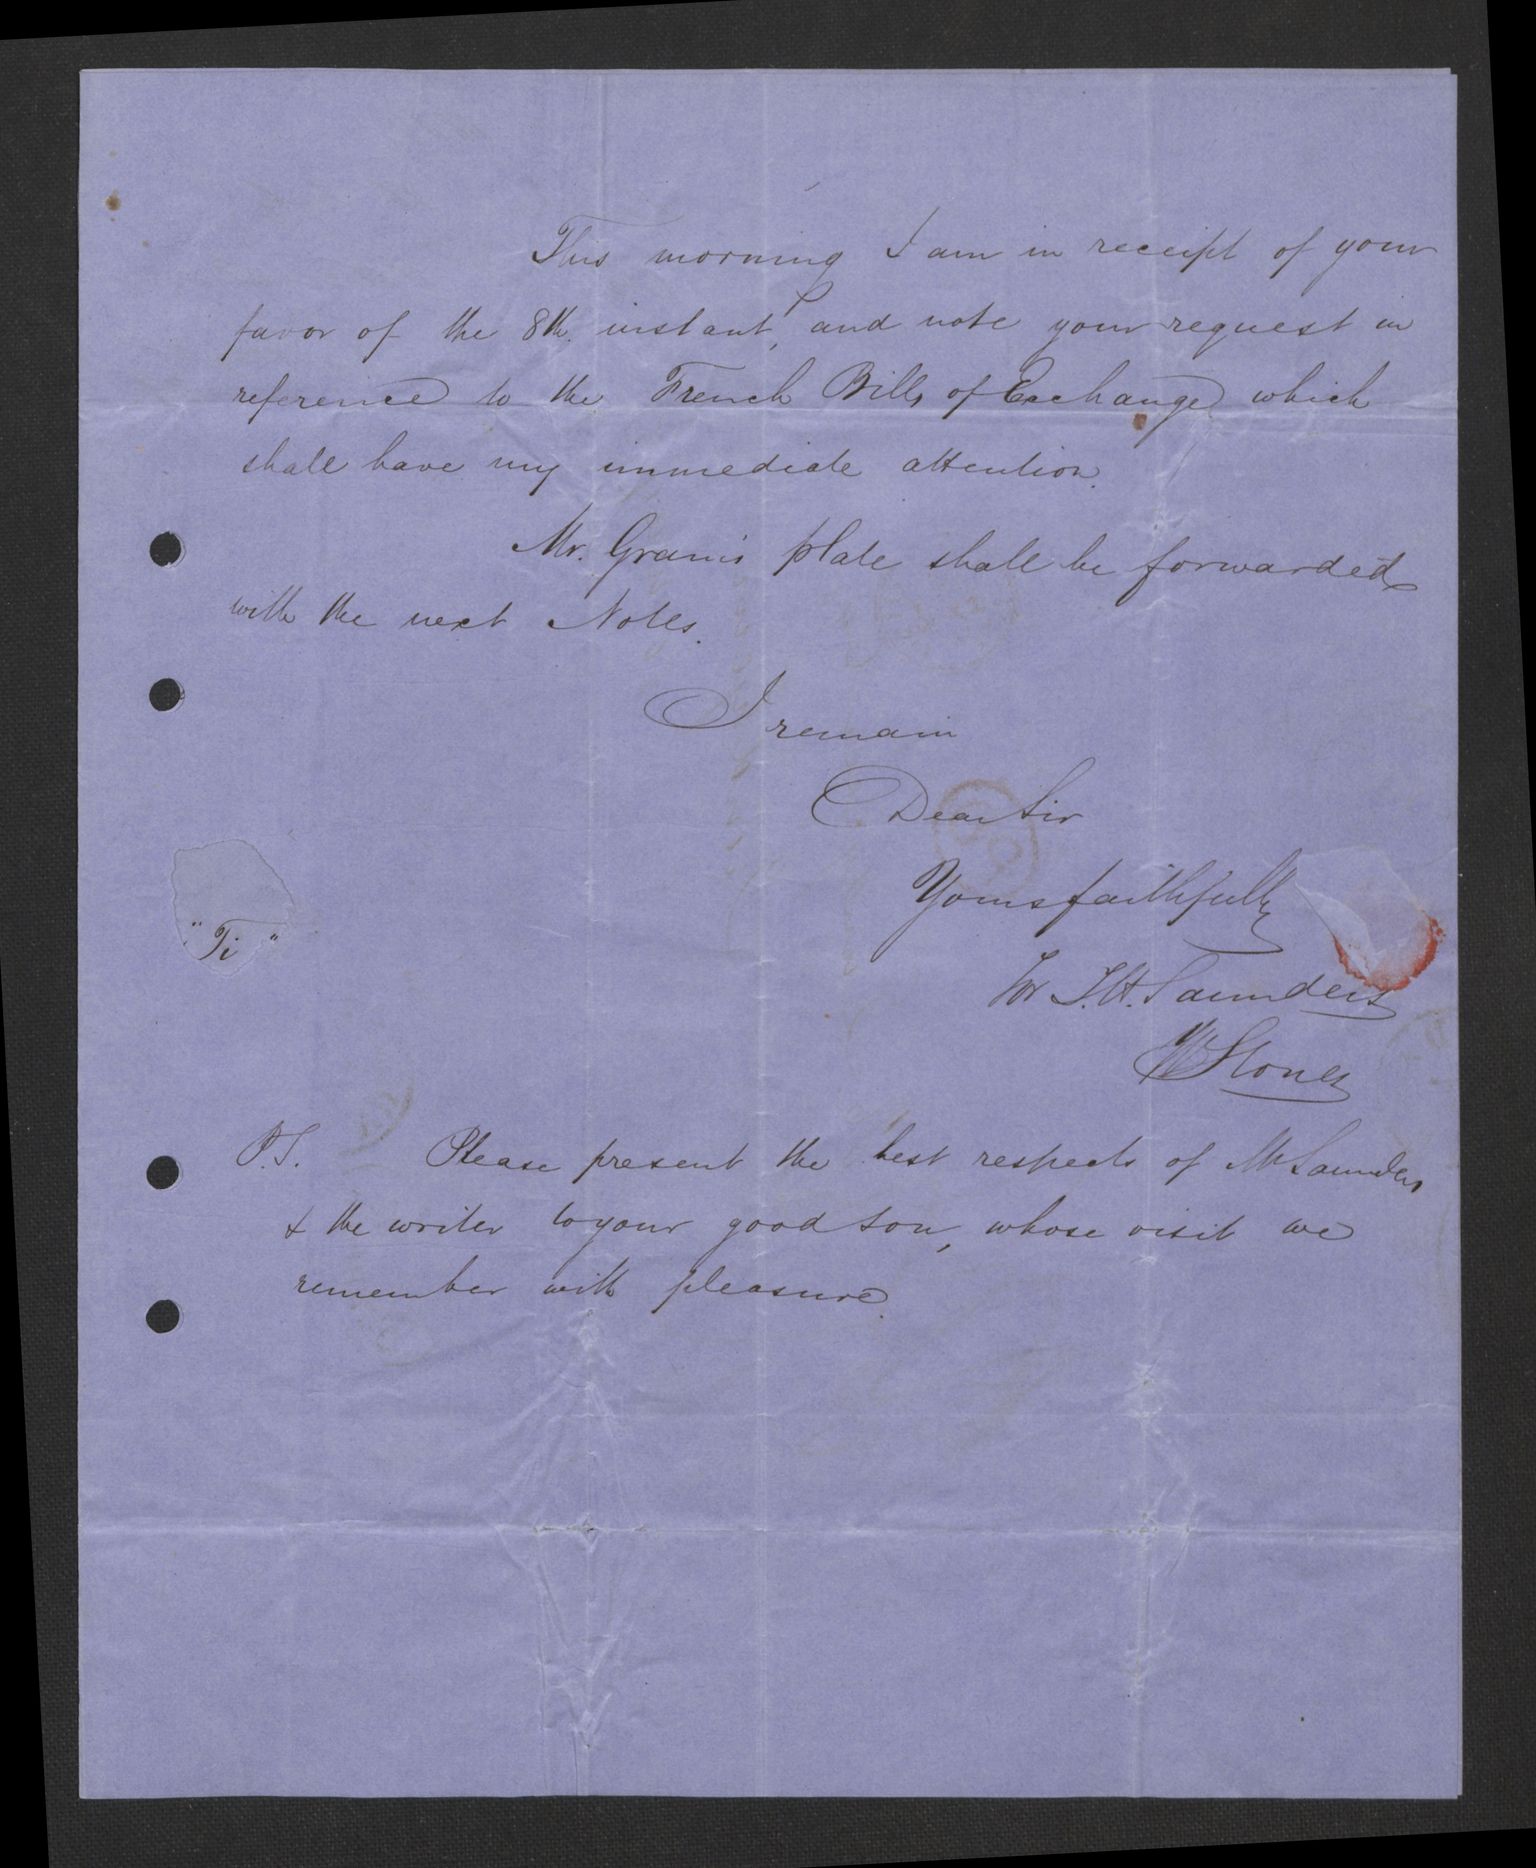 This morning I am in receipt of your
favor of the 8th. instant, and note your request in
reference to the French Bills of Exchange which
shall have my immediate attention.
Mr. Gram's plate shall be forwarded
with the next Notes.
I remain
Dear Sir
Yours faithfully
"Ti"
for T.H. Saunders
W Stones
P.S. Please present the best respects of Mr Saunders
& the writer to your good son, whose visit we
remember with pleasure.